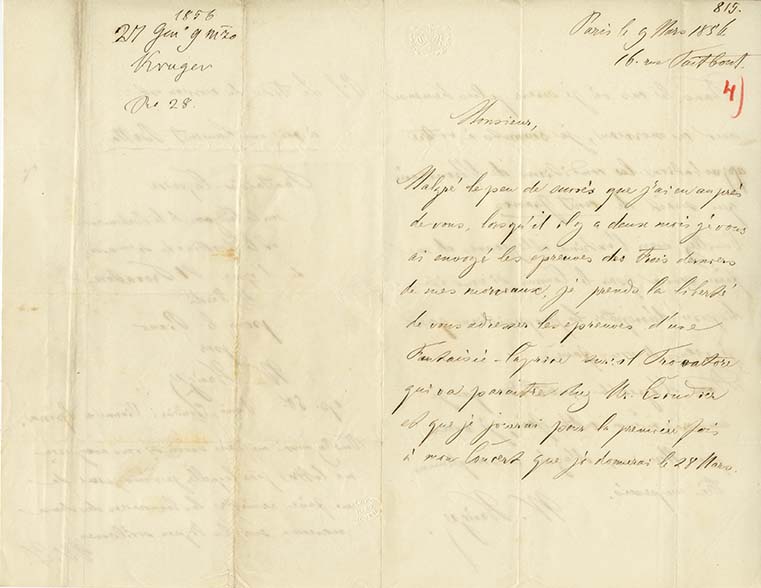 1856
27 Gen° 9 Mzo
Kruger
Re 28.
815.
Paris le 9 Mars 1856
16. rue Taitbout.
4)
Monsieur,
Malgré le peu de succès que j'ai eu auprès
de vous, lorsqu'il il y a deux mois je vous
ai envoyé les épreuves des trois derniers
de mes morceaux, je prends la liberté
de vous adresser les épreuves d'une
Fantaisie-Caprice sur il Trovatore
qui va paraître chez Mr. Escudier
et que je jouerai pour la première fois
à mon Concert que je donnerai le 28 Mars.